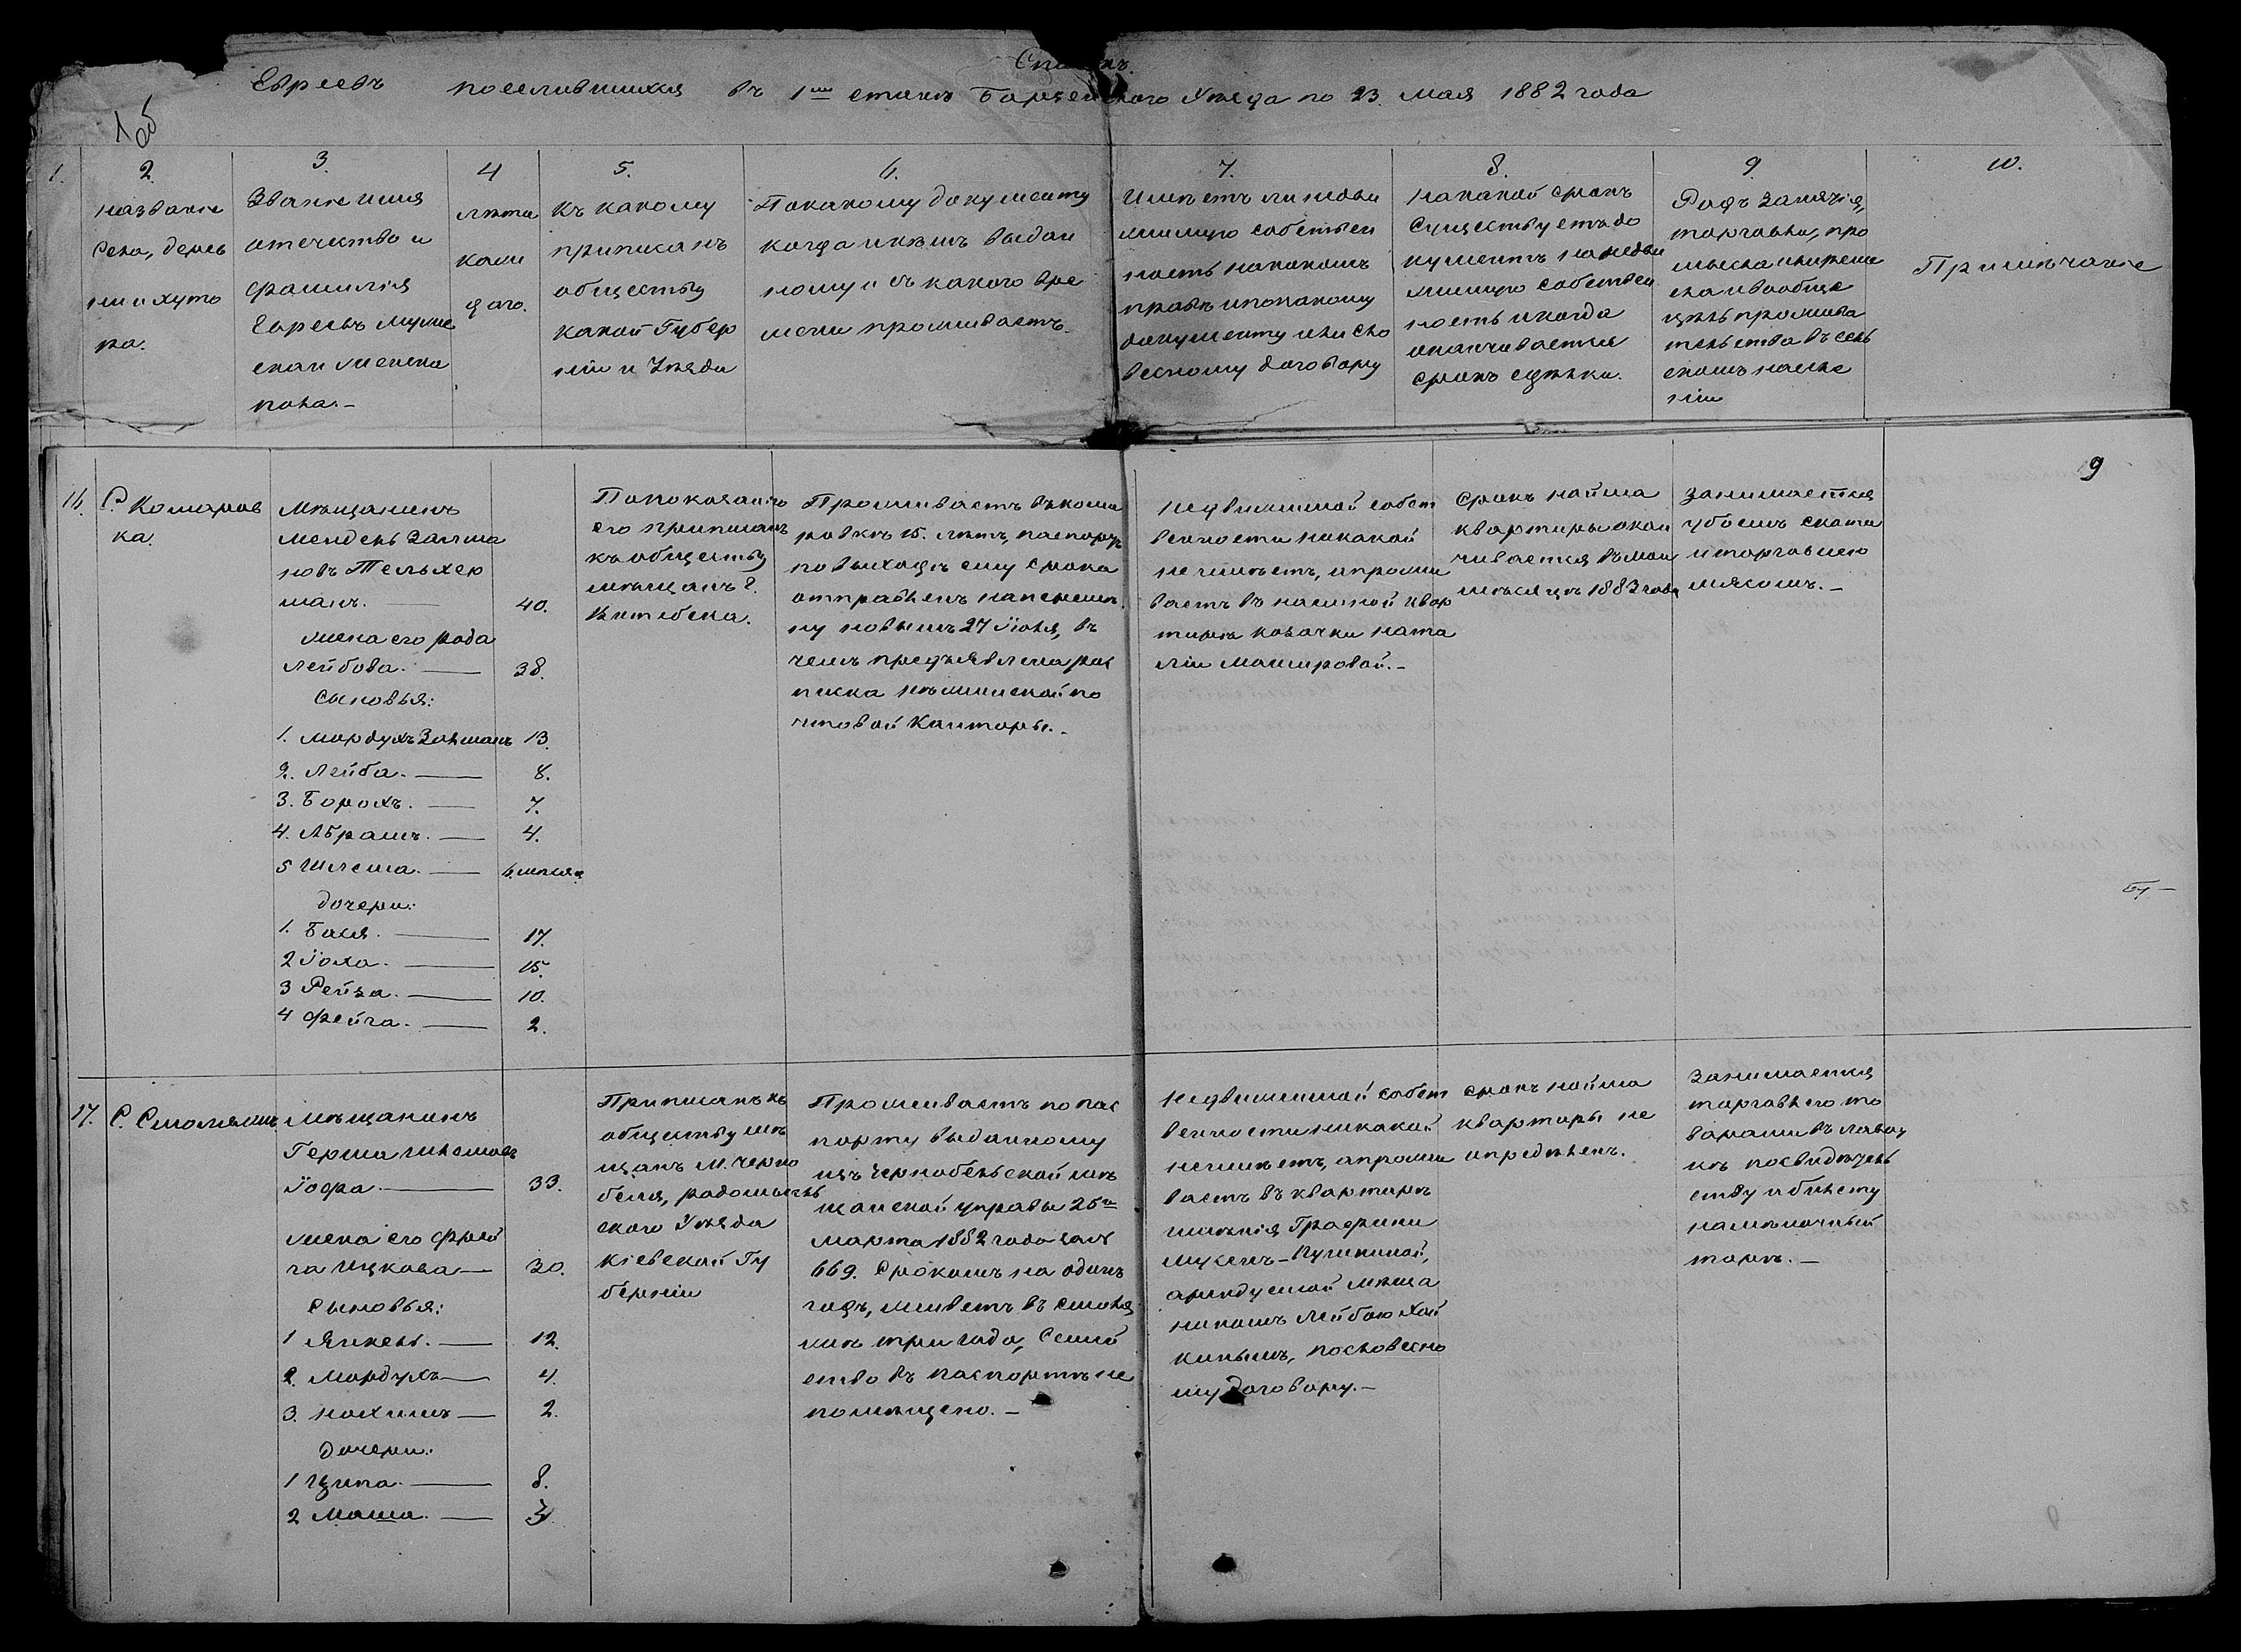 Списокъ.
Евреевъ поселившихся въ 1мъ станѣ Борзенского Уѣзда по 23. мая 1882 года
1об
1.
2.
Названіе
Села, дерев
ни и хуто
ра.
3.
Званіе имя
отечество и
фамилія
Евреевъ муже
скаи женска
пола.–
4
лѣта
каж
даго.
5.
Къ какому
приписанъ
обществу
какой Губер
ніи и Уѣзда
6.
По какому документу
когда и кѣмъ выдан
ному и съ какого вре
мени проживаетъ.
7.
Имѣетъ ли недви
жимую собствен
ность на какомъ
правѣ и по какому
документу или сло
весному договору
8.
На какой срокъ
существуетъ до
кументъ на недви
жимую собствен
ность и когда
оканчивается
срокъ сдѣлки.
9.
Родъ занятія,
торговли, про
мысла и ремесла
и вообще
цѣль прожива
тельства въ сель
скомъ населе
ніи
10.
Примѣчаніе
9
16.
С. Комаров
ка.
Мѣщанинъ
Мендель Залма
новъ Тельхею
манъ. — 40.
жена его Рода
Лейбова. — 38.
Сыновья:
1. Мордухъ Залманъ 13.
2. Лейба. — 8.
3. Борохъ. — 7.
4. Абрамъ. — 4.
5 Шлема. — 6 мѣся.
дочери:
1. Бася. — 17.
2 Іоха. — 15.
3 Рейза. — 10.
4 Фейга. — 2.
По показанію
его приписанъ
къ обществу
мѣщанъ г.
Витебска.
Проживаетъ въ кома
ровкѣ 15. лѣтъ, паспортъ
по выходѣ ему срока
отправленъ на перемѣ
ну новымъ 27 Іюля, въ
чемъ предъявлена рос
писка Нѣжинской по
чтовой Конторы.–
Недвижимой собст
венности никакой
не имѣетъ, а прожи
ваетъ въ наемной квар
тирѣ козачки Ната
ліи Мащировой.–
Срокъ найма
квартиры окан
чивается въ маи
мѣсяцѣ 1883 года
Занимается
убоемъ скота
и торговлею
мясомъ.–
17.
С. Смоляжъ
Мѣщанинъ
Герша Шлемовъ
Іофа — 33.
жена его Фрей
га Ицкова — 30.
Сыновья:
1 Янкель. — 12.
2. Мордухъ — 4.
3. Нохимъ — 2.
Дочери:
1 Ципа. — 8.
2 Маша. — 3.
Приписанъ къ
обществу мѣ
щанъ м. Черно
быля, радомысль
ского Уѣзда
Кіевской Гу
берніи
Проживаетъ по пас
порту выданному
изъ Чернобельской мѣ
щанской управы 25го
марта 1882 года за №
669. Срокомъ на одинъ
годъ, живетъ въ Смоля
жѣ три года, Семей
ство въ паспортѣ не
помѣщено.–
Недвижимой собст
венности никакой
не имѣетъ, а прожи
ваетъ въ квартирѣ
имѣнія Графини
Мусенъ-Пушкиной,
арендуемой мѣща
ниномъ Лейбою Хай
кинымъ, по словесно
му договору.–
Срокъ найма
квартиры не
опредѣленъ.
Занимается
торговлею то
варами въ лавоч
кѣ по свидѣтель
ству и билету
на мѣлочный
торгъ.–